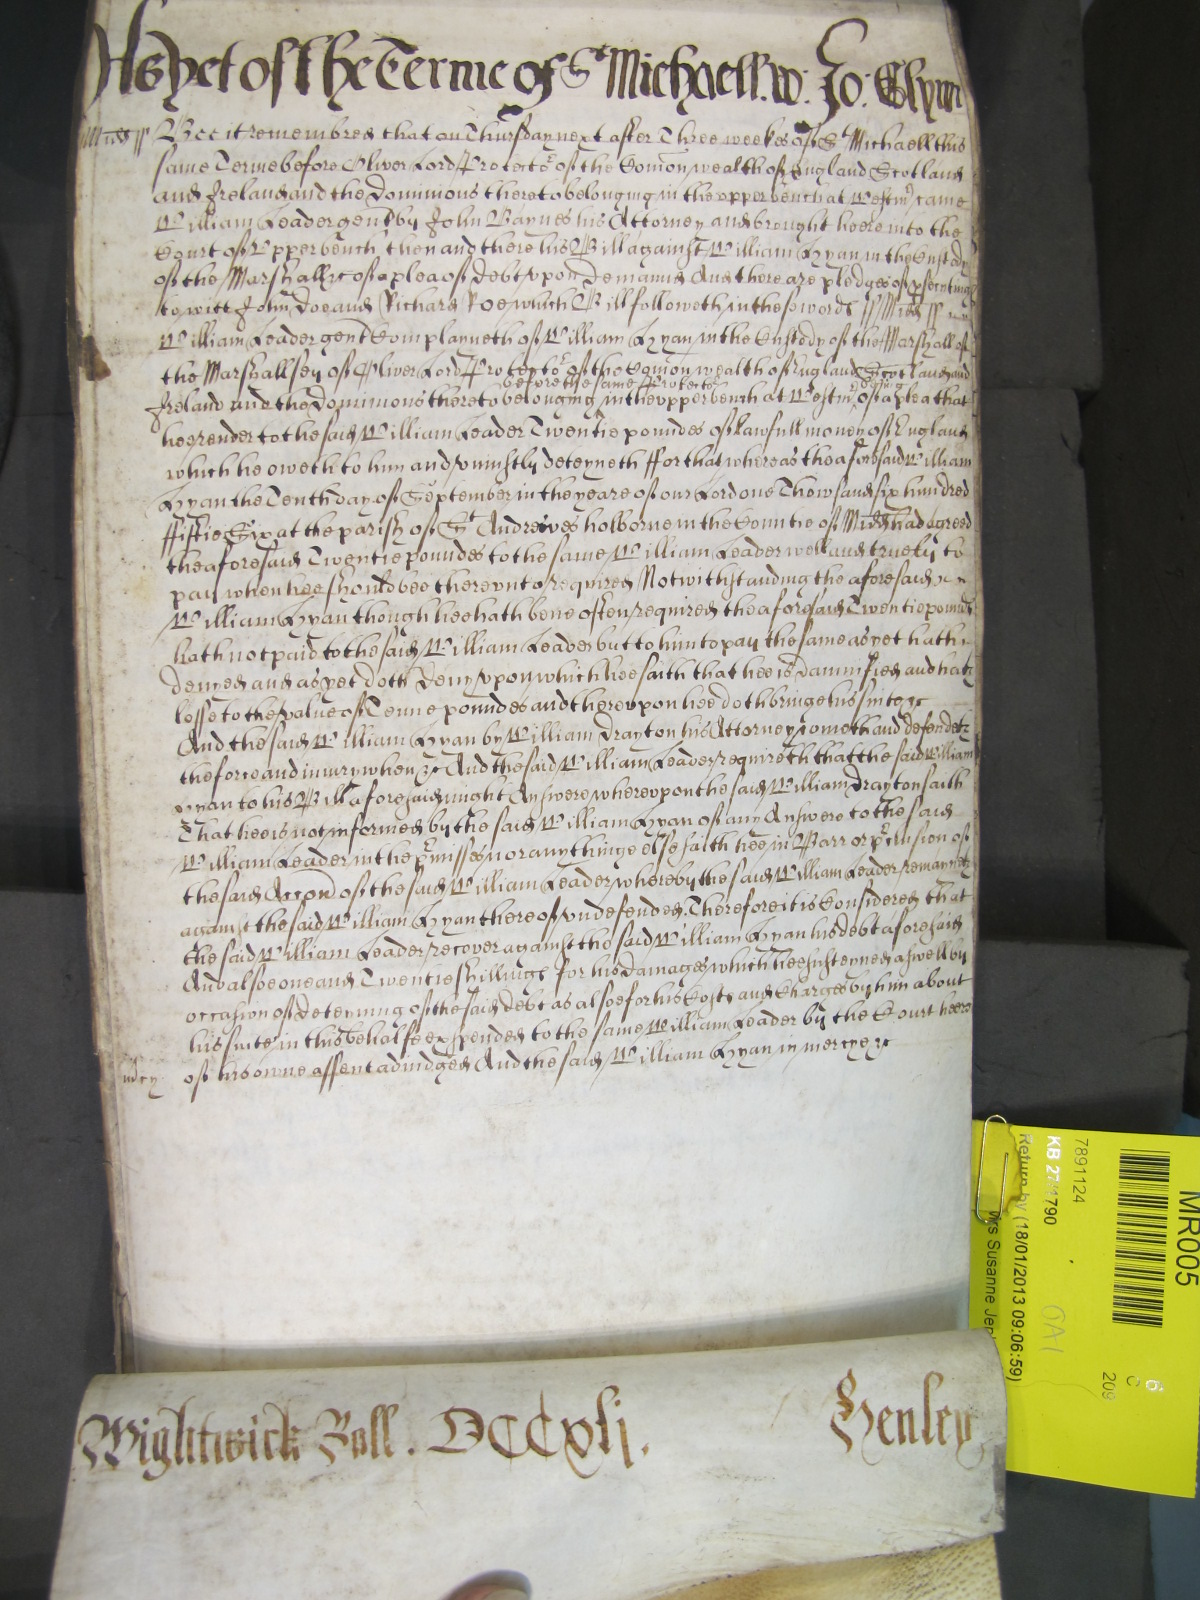 As yet of the Terme of St Michaell. w. Jo: Glynn
Midd ss Bee it remembred that on Thursday next after Three weekes of St Michaell this
same Terme before Oliver Lord Protector of the Comon wealth of England Scotland
and Ireland and the Dominions thereto belonging in the upper bench at Westmr came
William Leader gent by John Baynes his Attorney and brought heere into the
Court of Upper bench then and there his Bill against William Hyan in the Custody
of the Marshall &c of a plea of Debt upon Demannd And there are pledges of psecuting
to witt John Doe and Richard Roe which Bill followeth in these words ss Midd ss
William Leader gent Complayneth of William Hyan in the Custody of the Marshall of
the Marshallsey of Oliver Lord Protector of the Comon wealth of England Scotland and
before the same Protector being
Ireland and the Dominions thereto belonging in the upper bench at Westmr of a plea that
hee render to the said William Leader Twentie poundes of Lawfull money of England
which he oweth to him and uniustly deteyneth ffor that whereas the aforesaid William
Hyan the Tenth day of September in the yeare of our Lord one Thowsand six hundred
ffiftie Six at the parish of St Andrewes holborne in the Countie of Midd had agreed
the aforesaid Twentie poundes to the same William Leader well and truely to
pay when hee should bee thereunto required Notwithstanding the aforesaid
William Hyan though hee hath bene often required the aforesaid Twentie poundes
hath not paid to the said William Leader but to him to pay the same as yet hath
denyed and as yet doth deny upon which hee saith that hee is damnified and hath
losse to the value of Tenne poundes and thereupon hee doth bringe his suite &c
And the said William Hyan by William Drayton his Attorney cometh and defendeth
the force and iniury when &c And the said William Leader requireth that the said William
Hyan to his Bill aforesaid might Answere whereupon the said William Drayton saith
That hee is not informed by the said William Hyan of any Answere to the said
William Leader in the pmisses nor any thinge else saith hee in Barr or pclusion of
the said Accon of the said William Leader whereby the said William Leader remayneth
against the said William Hyan thereof undefended Therefore it is Considered that
the said William Leader recover against the said William Hyan his debt aforesaid
And alsoe one and Twentie shillings for his damages which hee susteyned aswell by
occasion of Deteyning of the said debt as alsoe for his Costs and Charges by him about
his suite in this behalfe expended to the same William Leader by the Court heere
of his owne assent adiudged And the said William Hyan in mercye &c
Wightwick Roll. DCCxlj. Henley
MR005
7891124
KB 27/1790
Return by (18/01/2013 09:06:59)
Mrs Susanne
6
C
209